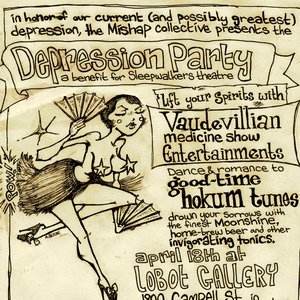 in honor of our current (and possibly greatest)
depression, the Mishap collective presents the
Depression Party
a benefit for Sleepwalkers theatre
Lift your Spirits with
Vaudevillian
medicine show
Entertainments
Dance & romance to
good-time
hokum tunes
drown your sorrows with
the finest Moonshine,
home-brew beer and other
invigorating tonics.
april 18th at
LOBOT GALLERY
1800 Campbell St.
POW!